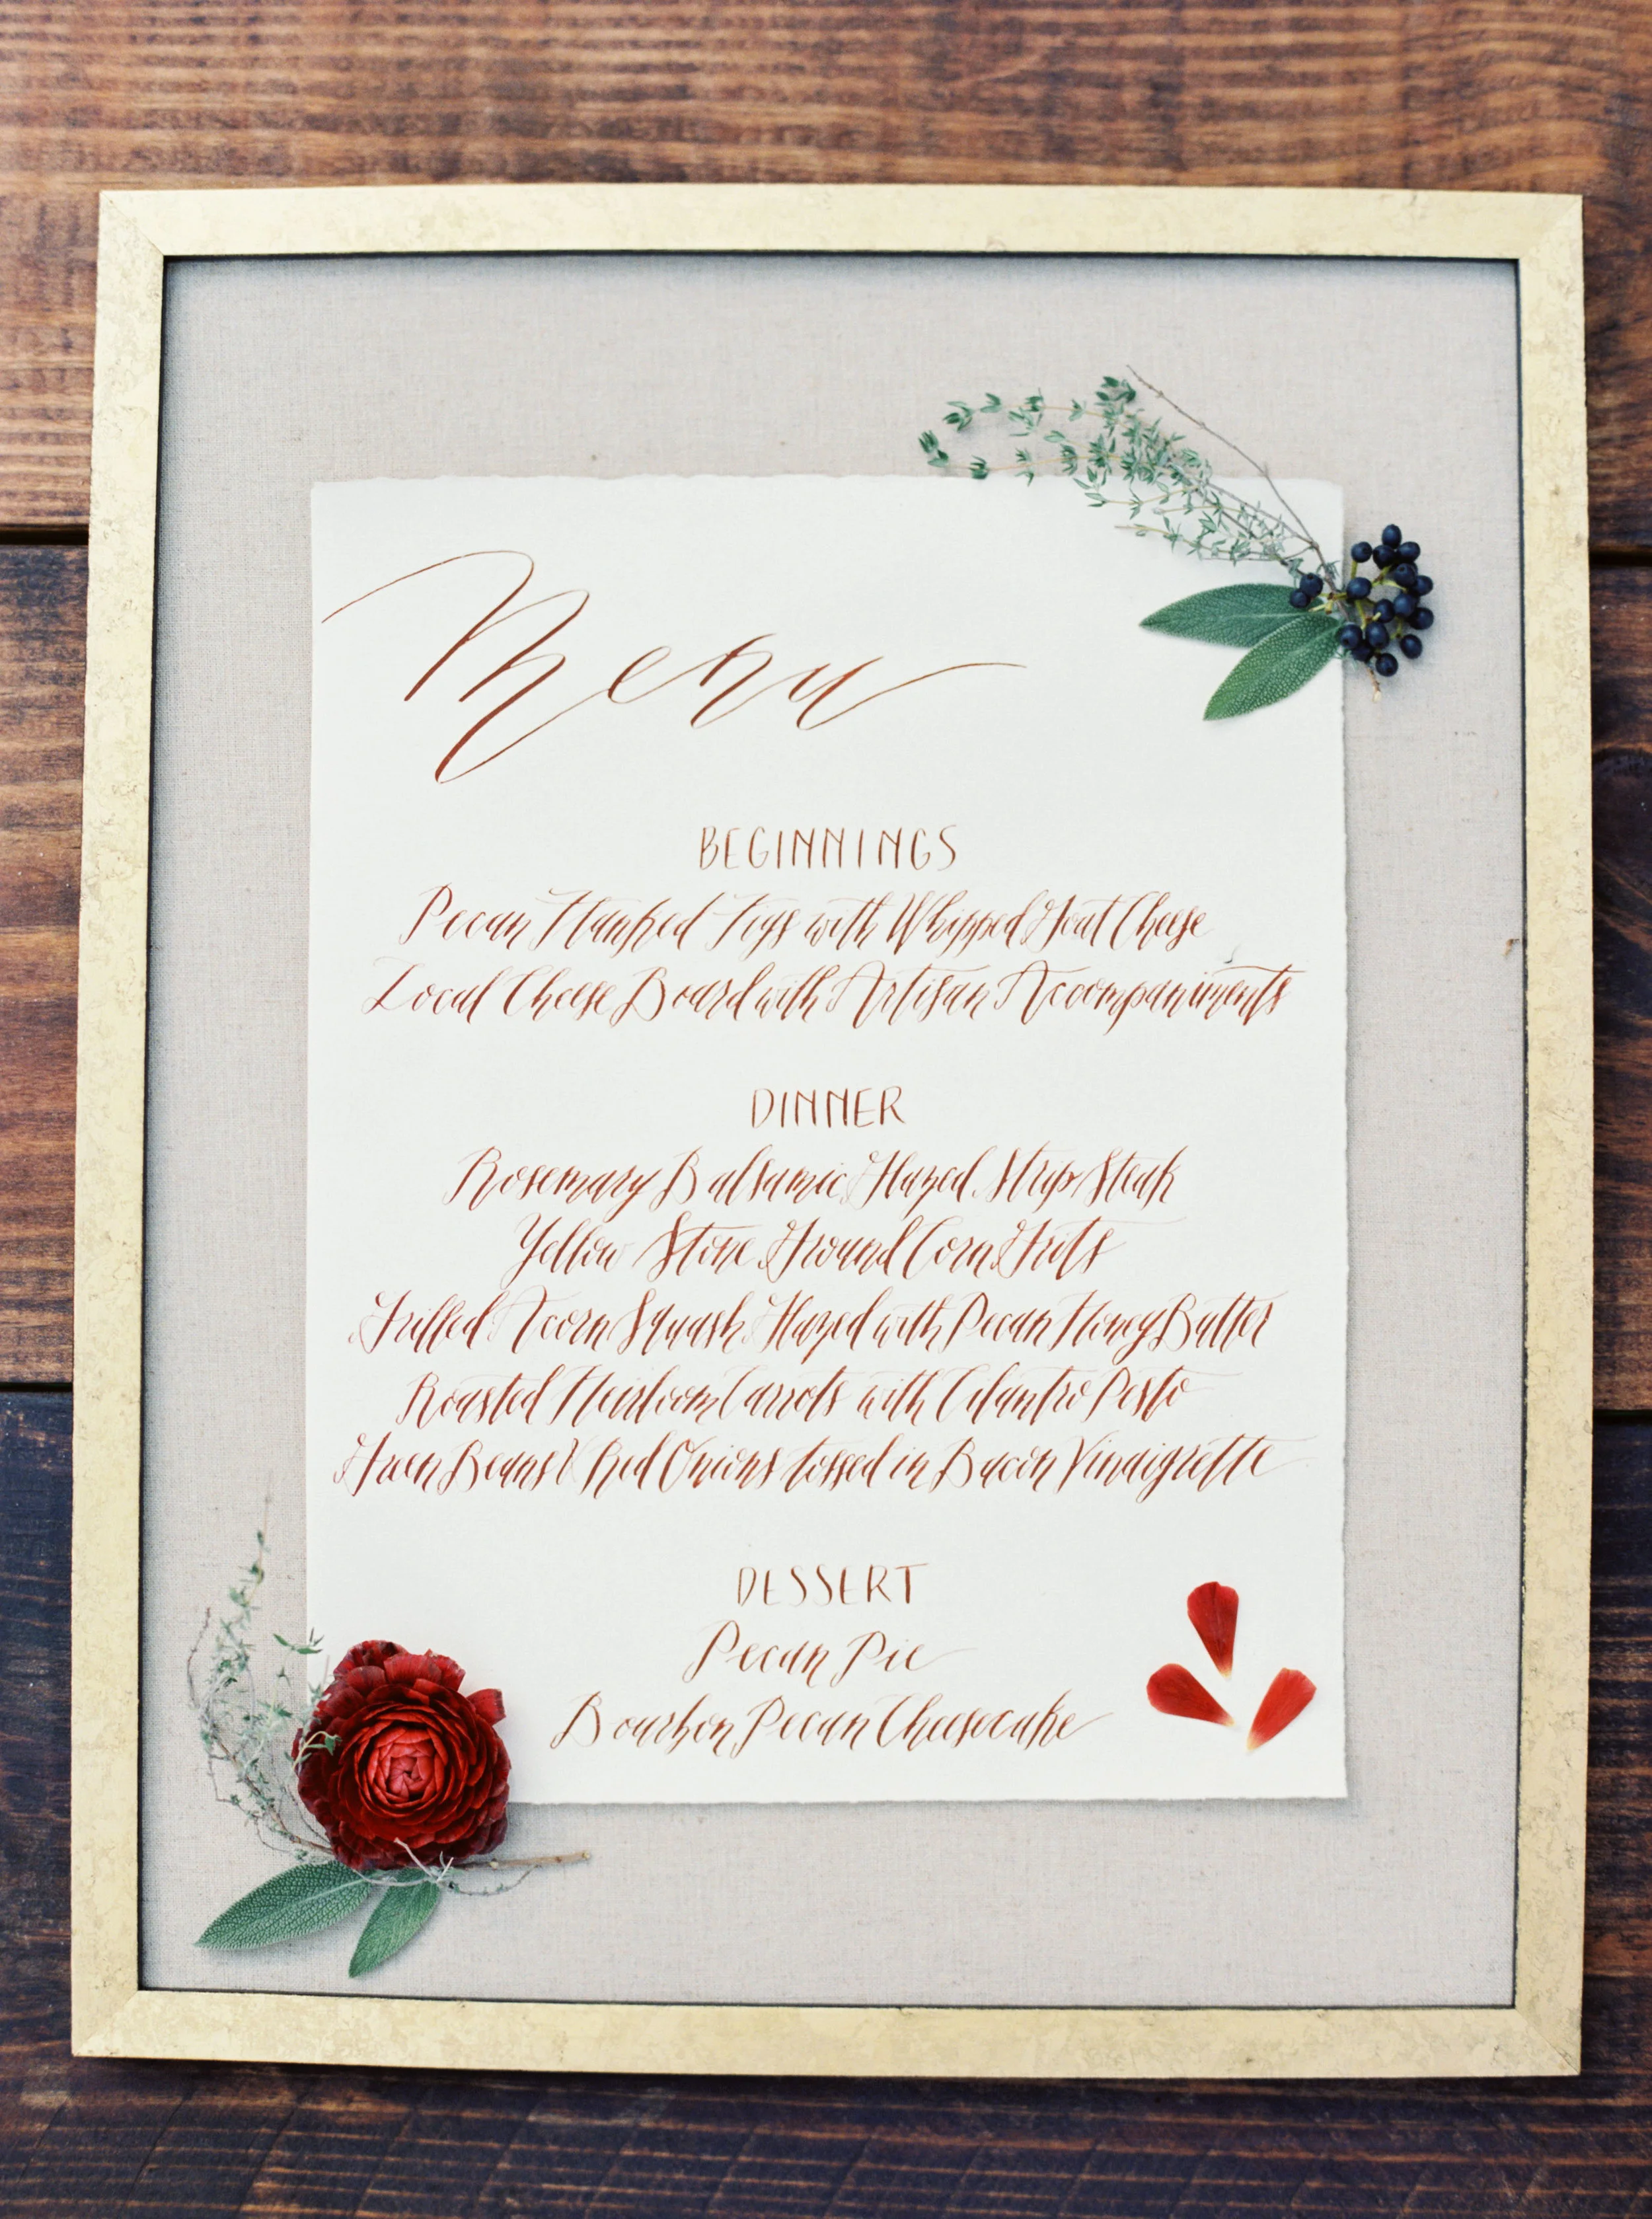 Menu
BEGINNINGS
Pecan Flanked Figs with Whipped Goat Cheese
Local Cheese Board with Artisan Accompaniments
DINNER
Rosemary Balsamic Glazed Strip Steak
Yellow Stone Ground Corn Grits
Grilled Acorn Squash Glazed with Pecan Honey Butter
Roasted Heirloom Carrots with Cilantro Pesto
Green Beans & Red Onions tossed in Bacon Vinaigrette
DESSERT
Pecan Pie
Bourbon Pecan Cheesecake